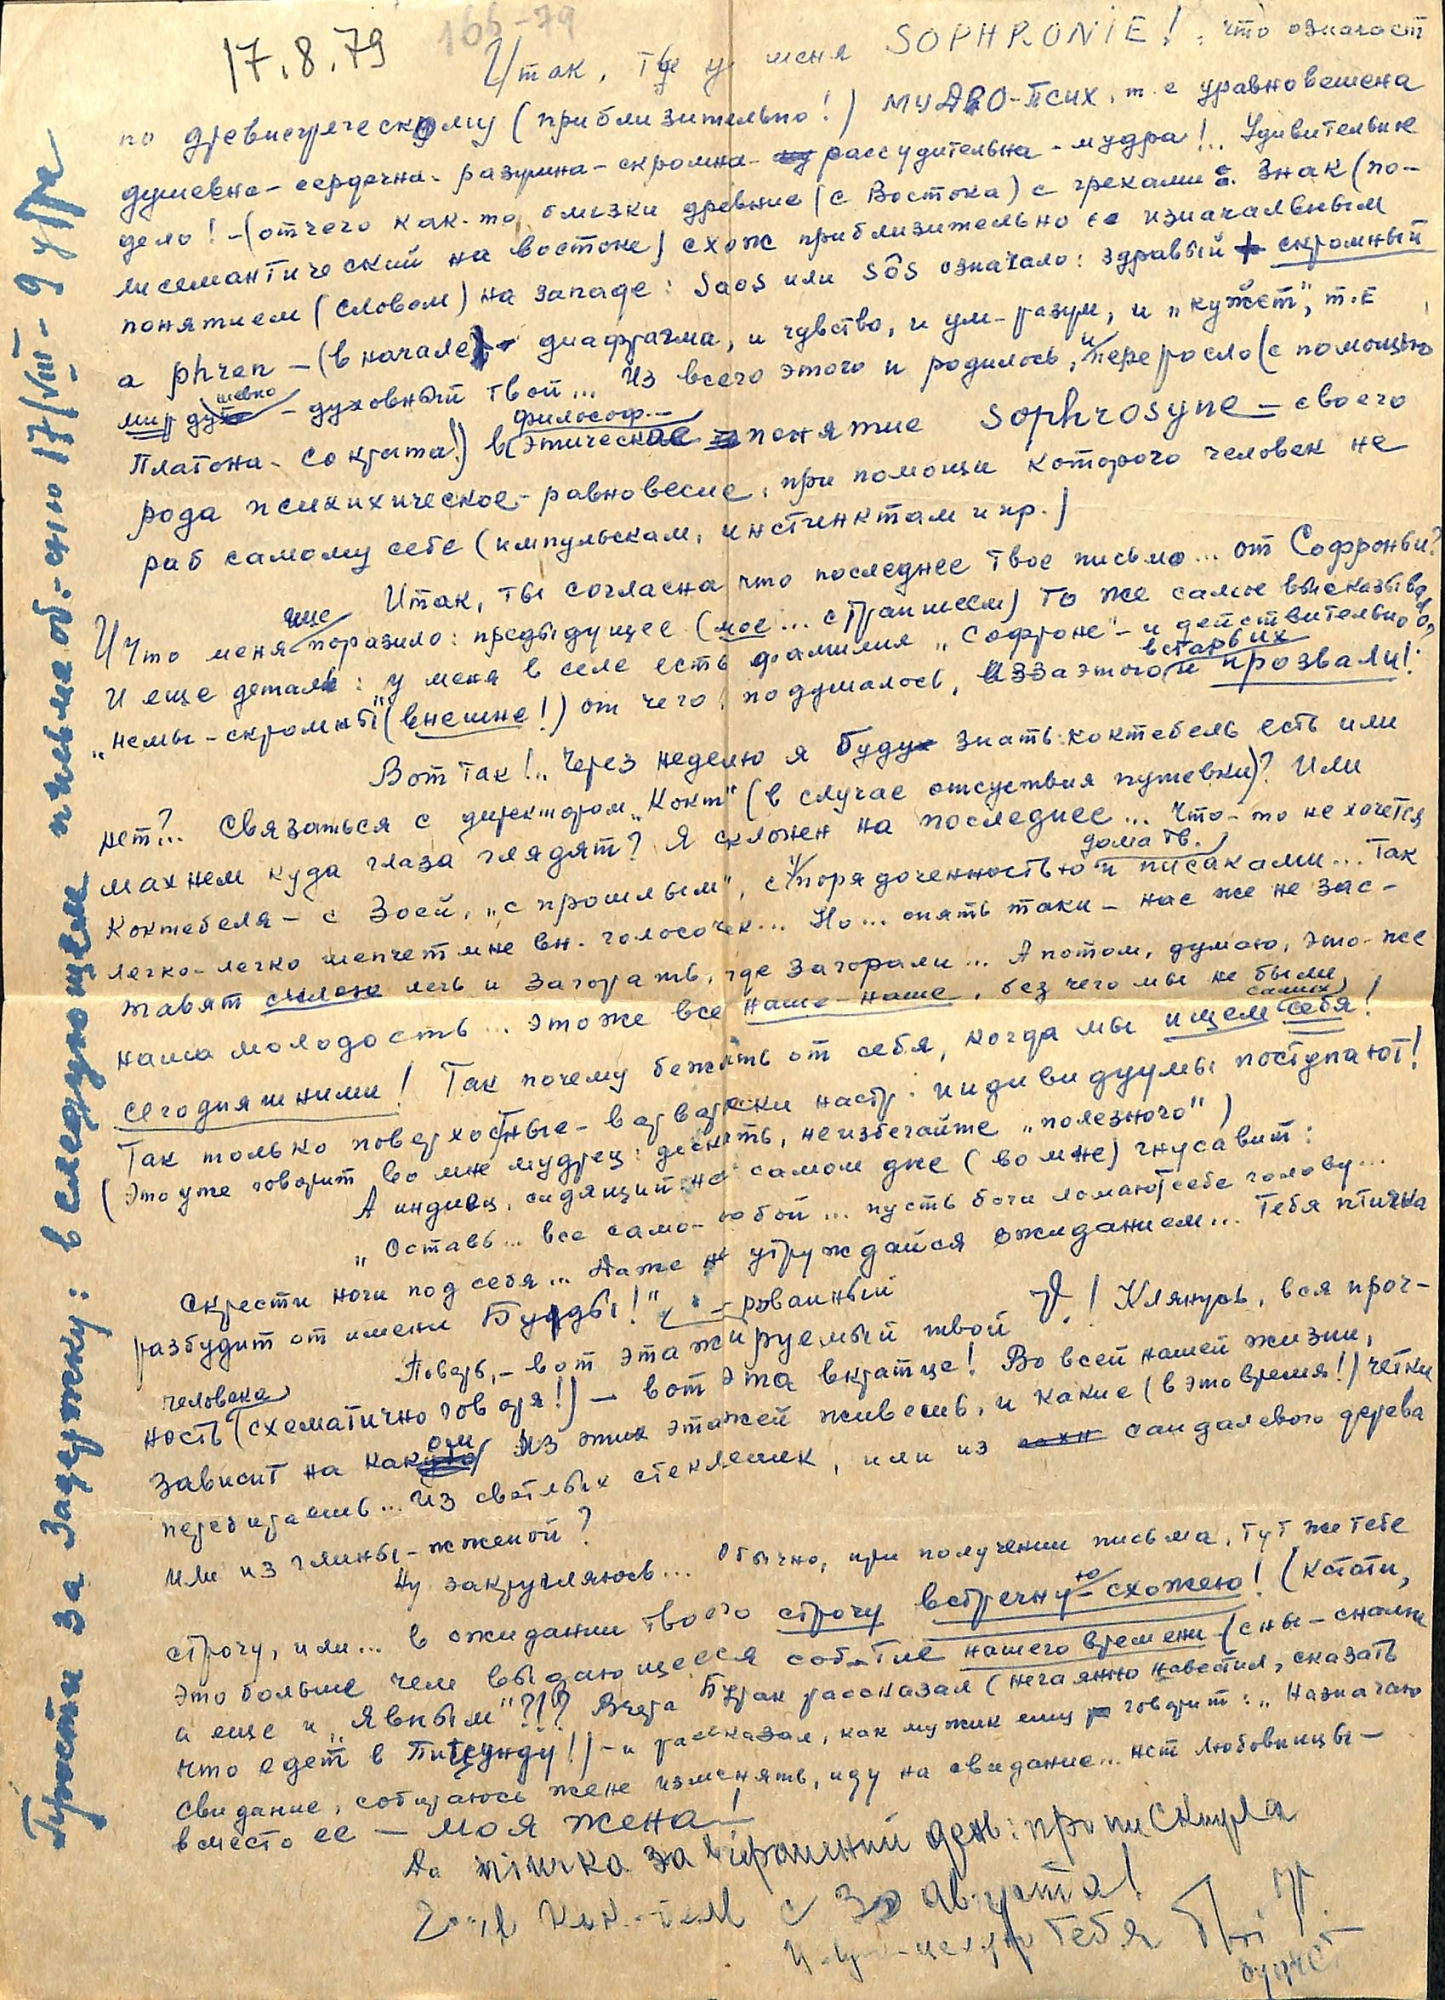 17.8.79
165-79
Итак, ты у меня SOPHRONIE!, что означает
по древнегреческому (приблизительно!) МУДРО-ПСИХ, т.е уравновешена
душевно-сердечна-разумна-скромна-рассудительна-мудра!.. Удивительное
дело! -(отчего как-то близки древние (с Востока) с греками: Знак (по-
лисемантический на востоке) схож приблизительно со изначальным
понятием (словом) на западе: Saos или SÔS означало: здравый + скромный
а phren - (в начале) диафрагма, и чувство, и ум-разум, и „кужет", т.е
мир душевно-духовный твой... Из всего этого и родилось, и переросло (с помощью
Платона-Сократа!) в (философ.-этическое понятие Sophrosyne - своего
рода психихическое-равновесие, при помощи которого человек не
раб самому себе (импульскам, инстинктам и пр.)
Итак, ты согласна что последнее твое письмо... от Софроньи?
И что меня еще поразило: предыдущее (мое... с траншеем) то же самое высказывало?
И еще деталь: у меня в селе есть фамилия „Софроне" - и действительно
„немы-скромны" (внешне!) от чего, подумалось, из за этого в старых и прозвали!
Вот так!.. Через неделю я буду знать: коктебель есть или
нет?.. Связаться с директором „Кокт" (в случае отсуствия путевки)? Или
махнем куда глаза глядят? Я склонен на последнее... Что-то не хочется
Коктебеля - с Зоей, „с прошлым", с упорядоченностью дома тв. и писаками... Так
легко-легко шепчет мне вн. голосочек... Но... опять таки - нас же не зас-
тавят силою лечь и загорать, где загорали... А потом, думаю, это-же
наша молодость... это же все наше-наше, без чего мы не были
сегодняшними! Так почему бежать от себя, когда мы ищем самих себя!
Так только поверхостные-варварски настр. индивидуумы поступают!
(Это уже говорит во мне мудрец: дескать, неизбегайте „полезного")
А индиец, сидящий на самом дне (во мне) гнусавит:
„Оставь... все само-собой... пусть боги ломают себе голову...
Скрести ноги под себя... Даже не утруждайся ожиданием... Тебя птичка
разбудит от имени Будды!"
Поверь, - вот эта жируемый-рованный твой Я! Клянусь, вся проч-
ность человека (схематично говоря!) - вот эта вкратце! Во всей нашей жизни,
зависит на каком из этих этажей живешь, и какие (в это время!) четки
перебираешь... Из светлых стекляшек, или из сандалевого дерева
или из глины-жженой?
Ну закругляюсь... Обычно, при получении письма, тут же тебе
строчу, или... в ожидании твоего строчу встречную-схожею! (Кстати,
это больше чем выдающееся событие нашего времени (сны-снами
а еще и „явным"?!? Вчера Буран рассказал (негаянно навестил, сказать
что едет в Питсунду!) - и рассказал, как мужик ему говорит: „Назначаю
свидание, собираюсь жене изменять, иду на свидание... нет любовницы -
вместо ее - моя жена!
Да птичка за вчерашний день: прописклула
с 30 августа!
Тебя
Прости за задержку: в следующем письма об.-ню 17/VIII - 9 утра